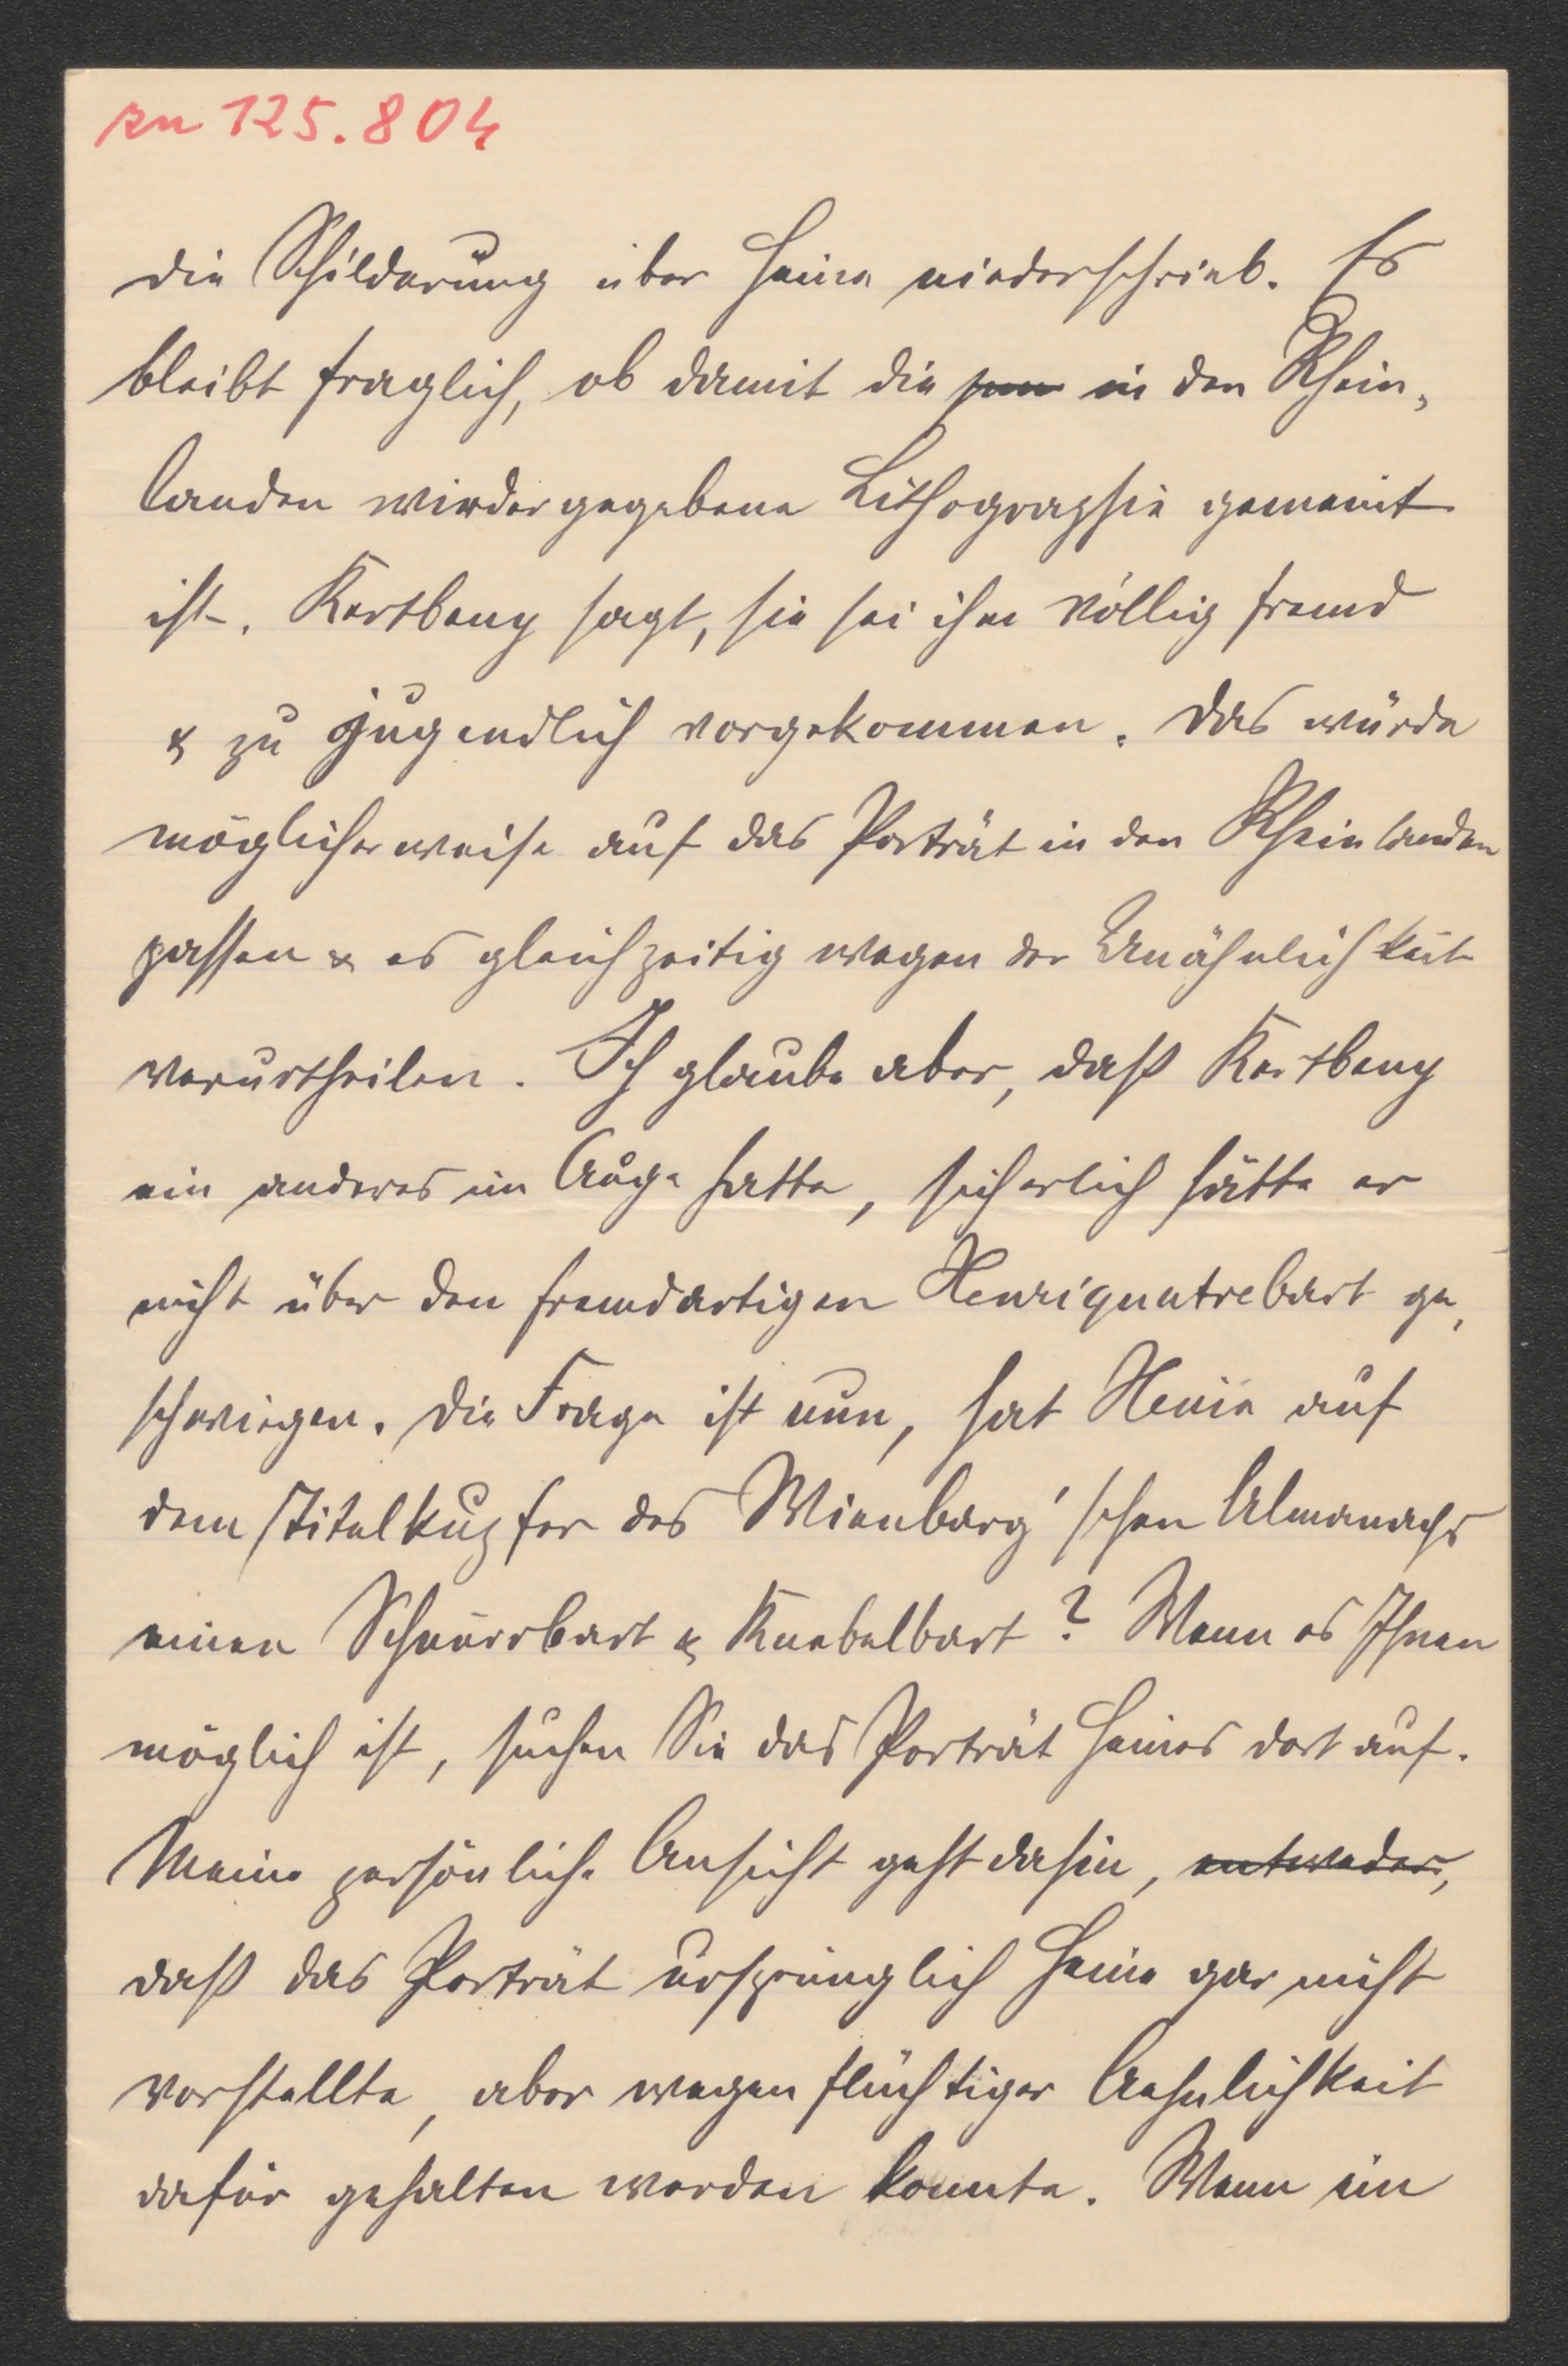 zu 125.804
die Schilderung über Heine niederschrieb. Es
bleibt fraglich, ob damit die in den Rhein-
landen wiedergegebene Lithographie gemeint
ist. Kertbeny sagt, sie sei ihm völlig fremd
& zu jugendlich vorgekommen. Das würde
möglicherweise auf das Porträt in den Rheinlanden
passen & es gleichzeitig wegen der Unähnlichkeit
verurtheilen. Ich glaube aber, daß Kertbeny
ein anderes im Auge hatte, sicherlich hätte er
nicht über den fremdartigen Henriquatrebart ge-
schwiegen. Die Frage ist nun, hat Heine auf
dem Titelkupfer des Wienbarg'schen Almanachs
einen Schnurrbart & Knebelbart? Wenn es Ihnen
möglich ist, suchen Sie das Porträt Heines dort auf.
Meine persönliche Ansicht geht dahin, entweder,
daß das Porträt ursprünglich Heine gar nicht
vorstellte, aber wegen flüchtiger Aehnlichkeit
dafür gehalten werden konnte. Wenn im